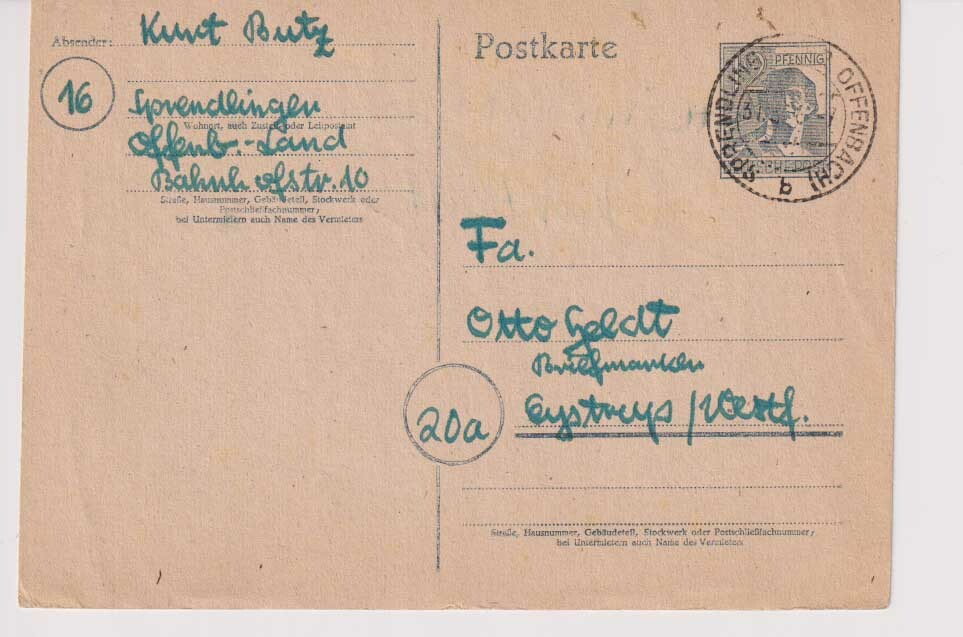 Absender: Kurt Butz
16
Sprendlingen
Wohnort, auch Zustell- oder Leitpostamt
Offenb.-Land
Bahnhofstr. 10
Straße, Hausnummer, Gebäudeteil, Stockwerk oder
Postschließfachnummer;
bei Untermietern auch Name des Vermieters
Postkarte
PFENNIG
SPRENDLINGEN
OFFENBACH)
b
Fa.
Otto Geldt
Briefmarken
20a
Eystrup /Westf.
Straße, Hausnummer, Gebäudeteil, Stockwerk oder Postschließfachnummer;
bei Untermietern auch Name des Vermieters